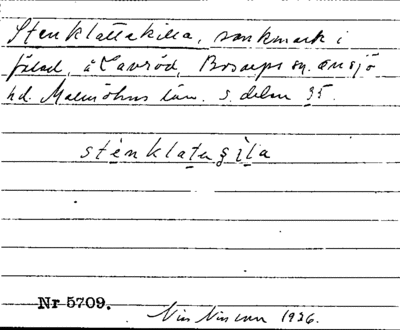 Stenklattakilla, sankmark i
fälad, å Lavröd, Bosarps sn. Onsjö
hd. Malmöhus län. s. delen 35.
stenklataşila
Nr 5709.
Nils Nilsson 1926.